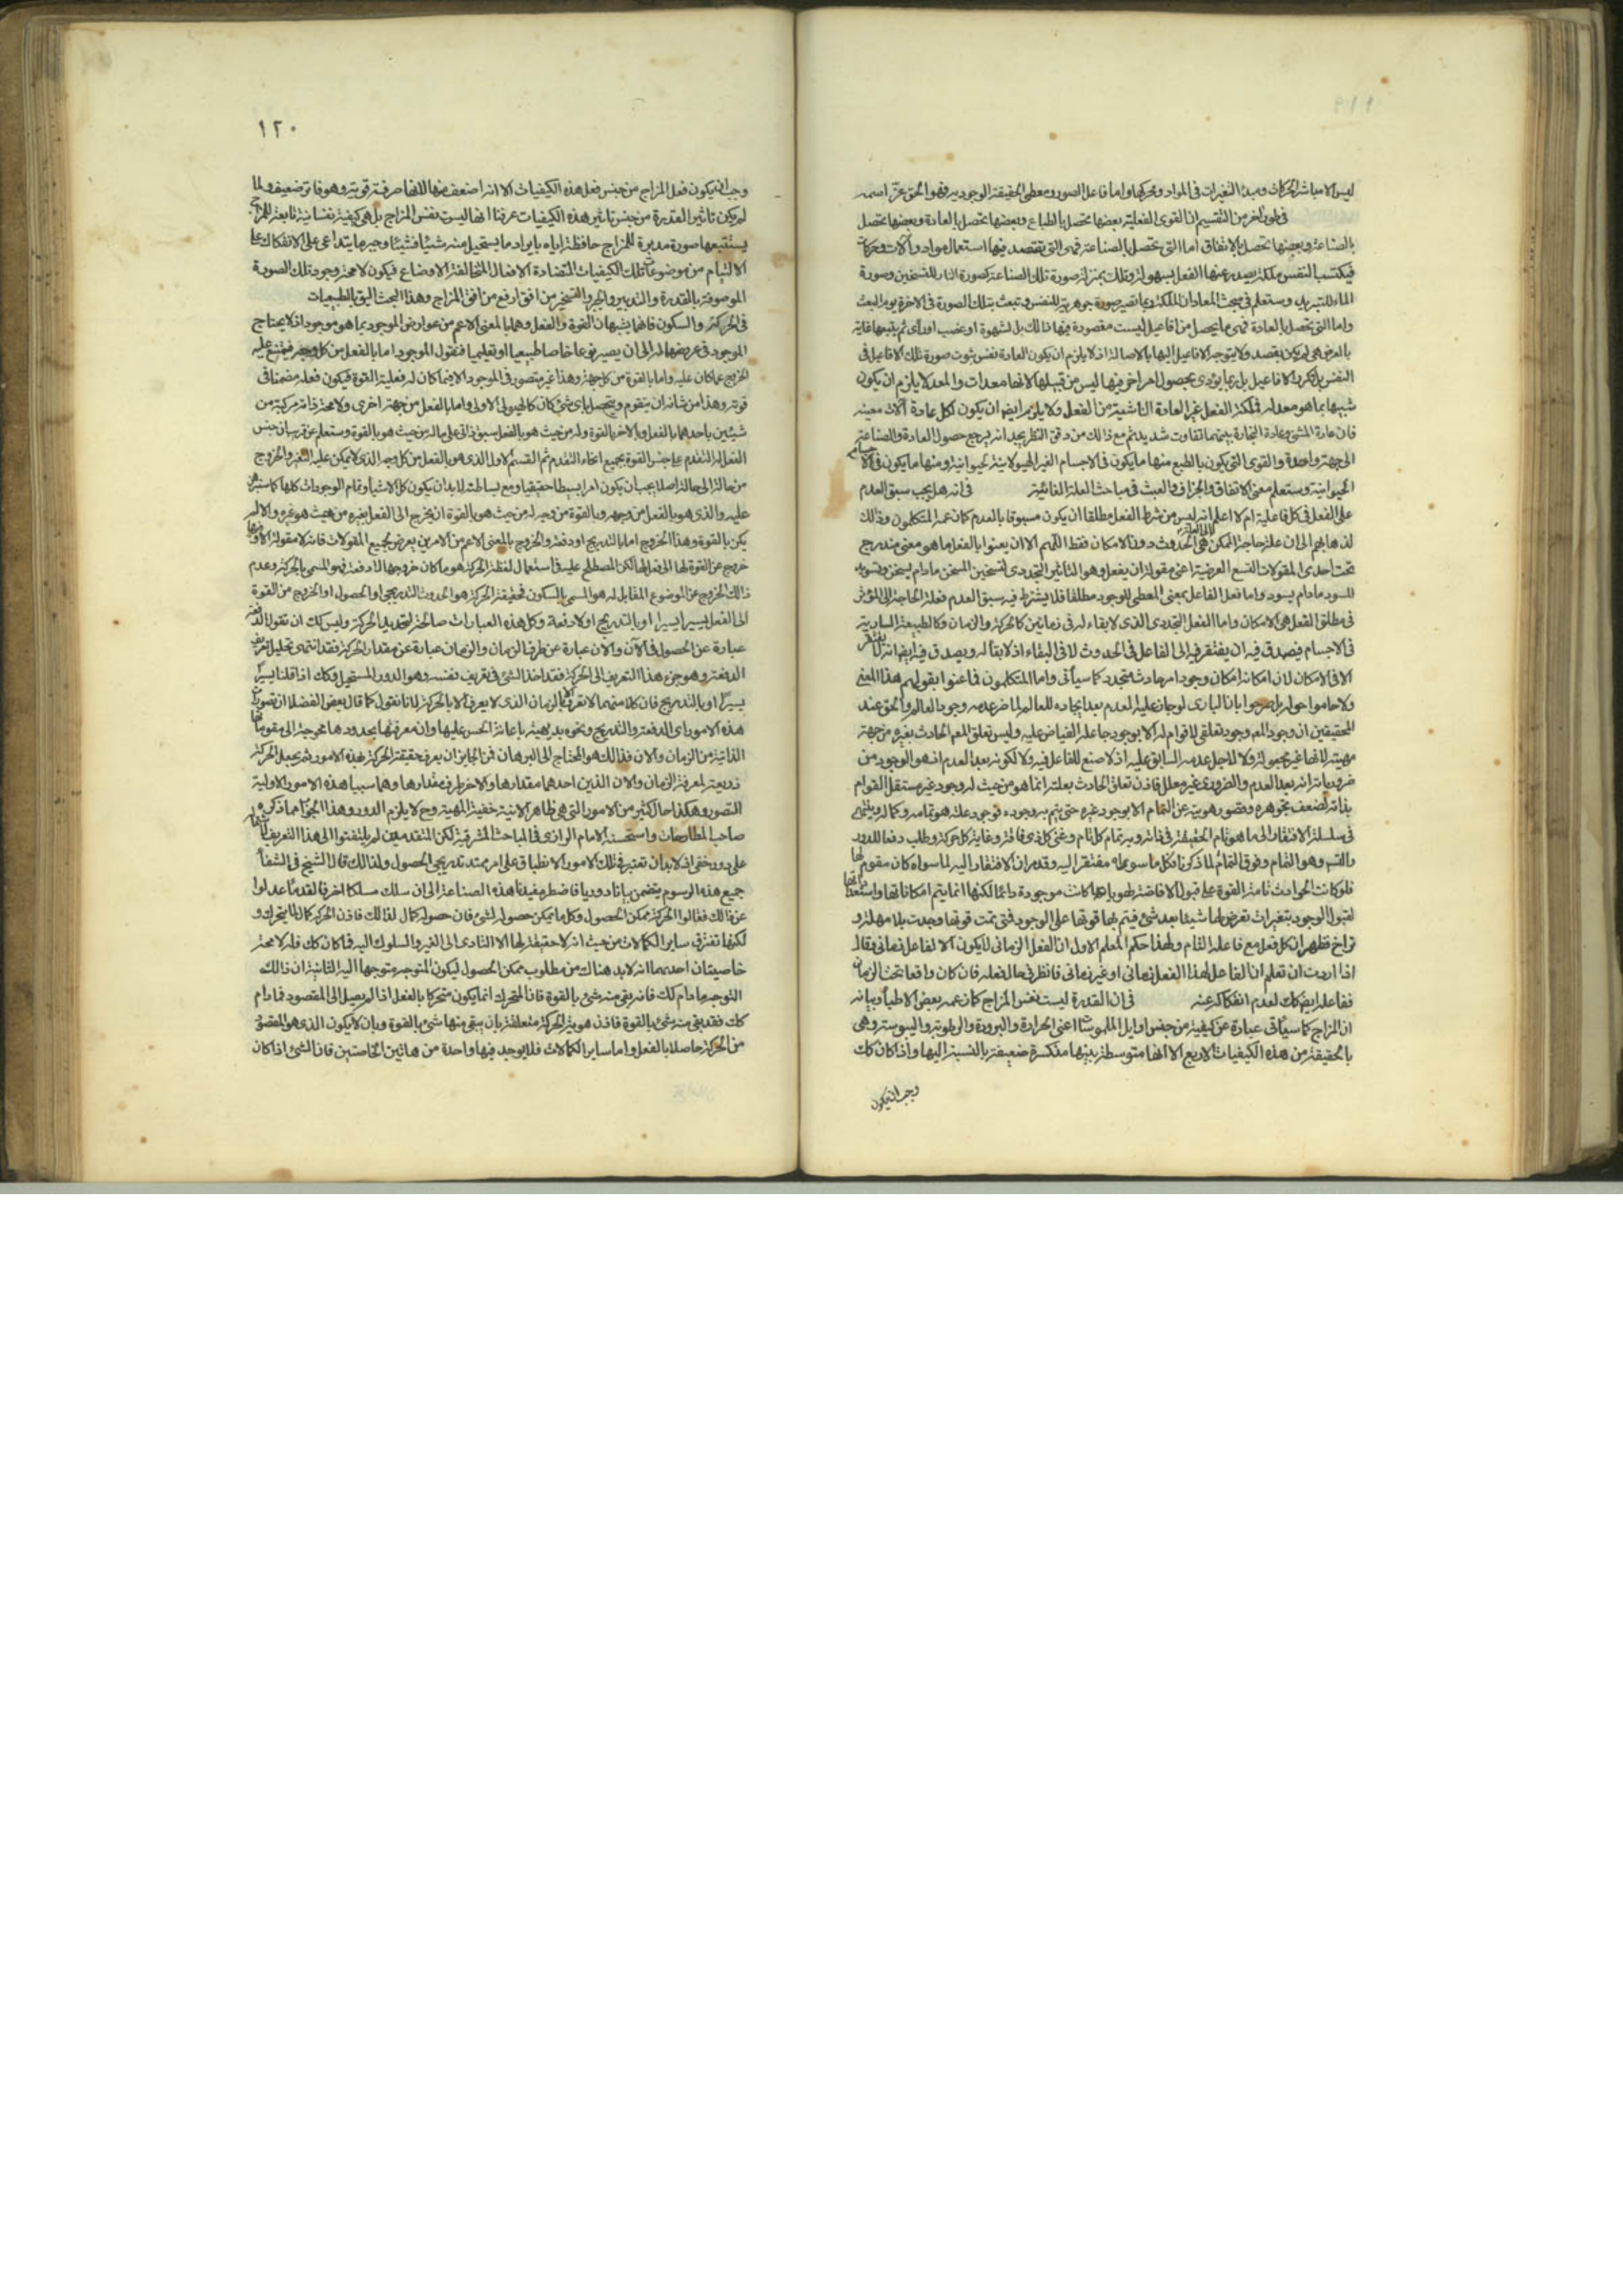 ١١٩
ليس الا مباشر الحركات ومبدأ التغيرات في المواد ومحركها واما فاعل الصورة ومعطي الحقيقة الوجودية فهو الحق عز اسمه
في طور آخر من التقسيم ان القوى الفعلية بعضها يحصل بالطباع وبعضها يحصل بالعادة وبعضها يحصل
بالصناعة وبعضها يحصل بالاتفاق اما التي يحصل بالصناعة فهي التي يقصد فيها استعمال مواد وآلات وحركات
فيكتسب النفس ملكة يصدر عنها الفعل بسهولة وتلك بمنزلة صورة تلك الصناعة كصورة النار للتسخين وصورة
الماء للتبريد وستعلم في مبحث المعاد ان الملكة ربما تصير صورة جوهرية للنفس وتبعث بتلك الصورة في الآخرة يوم البعث
واما التي يحصل بالعادة فهي ما يحصل من افاعيل ليست مقصودة فيها ذلك بل لشهوة او غضب او رأي ثم يتبعها غاية
بالعرض هي لم يكن بقصد ولا يتوجه الافاعيل اليها بالاصالة اذ لا يلزم ان يكون العادة نفس ثبوت صورة تلك الافاعيل في
النفس بل تكرر الافاعيل بل ربما يؤدي بحصول امر آخر فيها ليس من قبيلها لانها معدات والمعد لا يلزم ان يكون
شبيها بما هو معد له فملكة الفعل غير العادة الناشية من الفعل ولا يلزم ايضا ان يكون لكل عادة آلات معينة
فان عادة المشي وعادة التجارة بينهما تفاوت شديد ثم مع ذلك من دقق النظر يجد انه يرجع حصول العادة والصناعة
الى جهة واحدة والقوى التي يكون بالطبع منها ما يكون في الاجسام الغير الحيوانية ومنها ما يكون في الاجسام
الحيوانية وستعلم معنى الاتفاق والجزاف والعبث في مباحث العلة الغائية في انه هل يجب سبق العدم
على الفعل في كل فاعلية ام لا اعلم انه ليس من شرط الفعل مطلقا ان يكون مسبوقا بالعدم كما زعمه المتكلمون وذلك
لذهابهم الى ان علة حاجة الممكن الى العلة هي الحدوث دون الامكان فقط اللهم الا ان يعنوا بالفعل ما هو معنى مندرج
تحت احدى المقولات التسع العرضية اعني مقولة ان يفعل وهو التأثير التجددي لتسخين المسخن ما دام يسخن وتسويد
المسود ما دام يسود واما فعل الفاعل بمعنى المعطي للوجود مطلقا فلا يشترط فيه سبق العدم فعلة الحاجة الى المؤثر
في مطلق الفعل هي الامكان واما الفعل التجددي الذي لا بقاء له في زمانين كالحركة والزمان وكالطبيعة السارية
في الاجسام فيصدق فيه ان يفتقر فيه الى الفاعل في الحدوث لا في البقاء اذ لا بقاء له ويصدق فيه ايضا انه يفتقر
الا في الامكان لان امكانه امكان وجود امر حادث متجدد كما سيأتي واما المتكلمون فما عنوا بقولهم هذا المعنى
ولا حاموا حوله بل صرحوا بان الباري لو جاز عليه العدم بعد ايجاده للعالم لما ضر عدمه وجود العالم والحق عند
المحققين ان وجود المعلوم وجود تعلقي لا قوام له الا بوجود جاعله الفياض عليه وليس تعلق المعلول الحادث بغيره من جهة
مهيته لانها غير مجعولة ولا لاجل عدمه السابق عليه اذ لا صنع للفاعل فيه ولا لكونه بعد العدم اذ هو الوجود من
ضرورياته انه بعد العدم والضروري غير معلل فاذن تعلق الحادث بعلته انما هو من حيث له وجود غير مستقل القوام
بذاته لضعف تجوهره وقصور هويته عن التمام الا بوجود غيره حتى يتم به وجوده فوجود علته هو تمامه وكماله وينتهي
في سلسلة الافتقار الى ما هو تام الحقيقة في ذاته وبه تمام كل تام وغنى كل ذي فاقة وغاية كل حركة وطلب دفعا للدور
والتس وهو التمام وفوق التمام لما ذكرنا فكل ما سواه مفتقر اليه وقد مر ان الافتقار اليه لما سواه كان مقوم لها
فلو كانت الحوادث تامة القوة على قبول الافاضة لهوياتها كانت موجودة دائما لكنها انما يتم امكاناتها واستعداداتها
لقبول الوجود بتغيرات تعرض لها شيئا بعد شيء فيتم بها قوتها على الوجود فمتى تمت قوتها وجدت بلا مهلة و
تراخ فظهر ان كل فعل مع فاعله التام ولهذا حكم المعلم الاول ان الفعل الزماني لا يكون الا لفاعل زماني وقال
اذا اردت ان تعلم ان الفاعل لهذا الفعل زماني او غير زماني فانظر في حال فعله فان كان واقعا تحت الزمان
ففاعله ايض كك لعدم انفكاكه عنه في ان القدرة ليست نفس المزاج كما زعمه بعض الاطباء وبيانه
ان المزاج كما سيأتي عبارة عن كيفية من جنس اوايل الملموسات اعني الحرارة والبرودة والرطوبة واليبوسة وهي
بالحقيقة من هذه الكيفيات الاربع الا انها متوسطة بينها منكسرة ضعيفة بالنسبة اليها واذا كان كك
وجب ان يكون
١٢٠
وجب ان يكون فعل المزاج من جنس فعل هذه الكيفيات الا انه اضعف منها لانها صرفة قوية وهو فاتر ضعيف ولما
لم يكن تأثير القدرة من جنس تأثير هذه الكيفيات عرفنا انها ليست نفس المزاج بل هي كيفية نفسانية تابعة للمزاج
يستتبعها صورة مدبرة للمزاج حافظة اياه بايراد ما يستحيل منه شيئا فشيئا وجبر ما يتداعى على الانفكاك على
الالتيام من موضوعات تلك الكيفيات المتضادة الافعال المتخالفة الاوضاع فيكون لا محة وجود تلك الصورة
الموصوفة بالقدرة والتدبير والجبر والتسخير من افق ارفع من افق المزاج وهذا البحث اليق بالطبيعيات
في الحركة والسكون فانهما يشبهان القوة والفعل وهما بالمعنى الاعم من عوارض الموجود بما هو موجود اذ لا يحتاج
الموجود في عروضهما له الى ان يصير نوعا خاصا طبيعيا او تعليميا فنقول الموجود اما بالفعل من كل وجه فيمتنع عليه
الخروج عما كان عليه واما بالقوة من كل جهة وهذا غير متصور في الموجود الا فيما كان له فعلية القوة فيكون فعله مضمنا في
قوته وهذا من شأنه ان يتقوم ويتحصل باي شيء كان كالهيولى الاولى واما بالفعل من جهة اخرى ولا محة ذاته مركبة من
شيئين باحدهما بالفعل وبالآخر بالقوة وله من حيث هو بالفعل سبق ذاتي على ماله من حيث هو بالقوة وستعلم عن قريب ان جنس
الفعل له التقدم على جنس القوة بجميع انحاء التقدم ثم القسم الاول الذي هو بالفعل من كل وجه الذي لا يمكن عليه التغير والخروج
من حالة الى حالة اصلا يجب ان يكون امرا بسيطا حقيقيا ومع بساطته لا بد ان يكون كل الاشياء وتمام الموجودات كلها كما سنبرهن
عليه والذي هو بالفعل من وجه وبالقوة من وجه له من حيث هو بالقوة ان يخرج الى الفعل بغيره من حيث هو غيره والا لم
يكن بالقوة وهذا الخروج اما بالتدريج او دفعة والخروج بالمعنى الاعم من الامرين يعرض لجميع المقولات فانه لا مقولة الا وفيها
خروج عن القوة لها الى فعل لها لكن المصطلح عليه في استعمال لفظة الحركة هو ما كان خروجها لا دفعة فهو المسمى بالحركة وعدم
ذلك الخروج عن الموضوع المقابل له هو المسمى بالسكون فحقيقة الحركة هو الحدوث التدريجي او الحصول او الخروج من القوة
الى الفعل يسيرا يسيرا او بالتدريج او لا دفعة وكل هذه العبارات صالحة لتحديد الحركة وليس لك ان تقول الدفعة
عبارة عن الحصول في الآن والآن عبارة عن طرف الزمان والزمان عبارة عن مقدار الحركة فقد انتهى تحليل تعريف
الدفعة وهو جزء هذا التعريف الى الحركة فقد اخذ الشيء في تعريف نفسه وهو الدور المستحيل وكك اذا قلنا يسيرا
يسيرا او بالتدريج فان كلا منهما لا تعرف الا بالزمان الذي لا يعرف الا بالحركة لانا نقول كما قال بعض الفضلاء ان تصورات
هذه الامور اي الدفعة والتدريج ونحوه بديهية باعانة الحس عليها وان معرفتها بحدودها محوجة الى مقوماتها
الذاتية من الزمان والآن فذلك هو المحتاج الى البرهان فمن الجايز ان يعرف حقيقة الحركة بهذه الامور ثم يجعل الحركة
ذريعة لمعرفة الزمان والآن الذين احدهما مقدارها والاخر طرف مقدارها وهما سببا هذه الامور الاولية
التصور وهكذا حال كثير من الامور التي هي ظاهر الانية خفية المهية وح لا يلزم الدور وهذا الجواب مما ذكره
صاحب المطارحات واستحسنه الامام الرازي في المباحث المشرقية لكن المتقدمين لم يلتفتوا الى هذا التعريف لاشتماله
على دور خفي اذ لا بد ان تعتبر في تلك الامور الانطباق على امر ممتد تدريجي الحصول ولذلك قال الشيخ في الشفاء
جميع هذه الرسوم يتضمن بيانا دوريا فاضطر مفيدنا هذه الصناعة الى ان سلك مسلكا اخر فالقدماء عدلوا
عن ذلك فقالوا الحركة ممكن الحصول وكل ما يمكن حصوله لشيء فان حصوله كمال لذلك فاذن الحركة كمال لما يتحرك و
لكنها تفترق ساير الكمالات من حيث انه لا حقيقة لها الا التادي الى الغير والسلوك اليه فما كان كك فله لا محة
خاصيتان احدهما انه لا بد هناك من مطلوب ممكن الحصول ليكون التوجه متوجها اليه الثانية ان ذلك
التوجه ما دام كك فانه بقي منه شيء بالقوة فان المتحرك انما يكون متحركا بالفعل اذا لم يصل الى المقصود فما دام
كك فقد بقي منه شيء بالقوة فاذن هوية الحركة متعلقة بان يبقى منها شيء بالقوة وبان لا يكون الذي هو المقصود
من الحركة حاصلا بالفعل واما ساير الكمالات فلا يوجد فيها واحدة من هاتين الخاصتين فان الشيء اذا كان